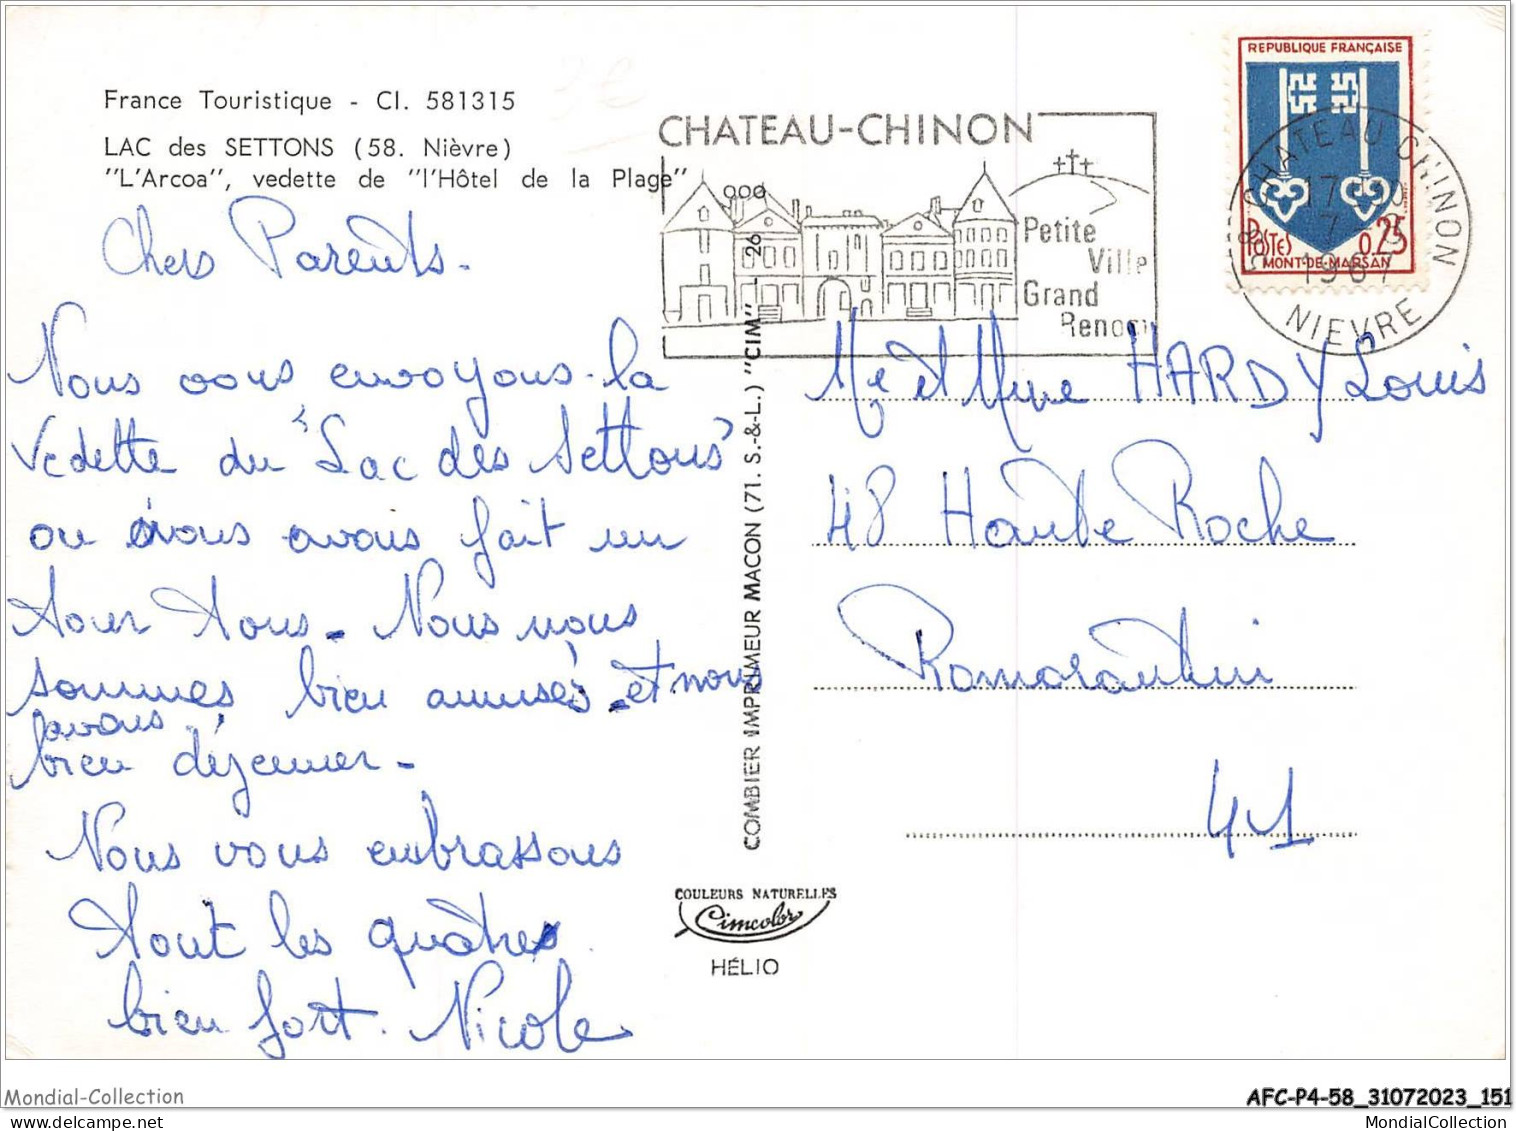 France Touristique - Cl. 581315
LAC des SETTONS (58. Nièvre)
"L'Arcoa", vedette de "l'Hôtel de la Plage"
Chers Parents.
Nous vous envoyons la
vedette du "Lac des Settons"
ou nous avons fait un
tour tous. Nous nous
sommes bien amusés et nous
avons
bien déjeuner.
Nous vous embrassons
tout les quatre
bien fort. Nicole
CHATEAU-CHINON
Petite
Ville
Grand
Renom
REPUBLIQUE FRANÇAISE
POSTES 0,25
MONT-DE-MARSAN
CHATEAU CHINON
1967
NIEVRE
COMBIER IMPRIMEUR MACON (71. S.-&-L.) "CIM" - 26
Mr et Mme HARDY Louis
48 Haute Roche
Romorantin
41
COULEURS NATURELLES
Cimcolor
HÉLIO
Mondial-Collection
AFC-P4-58_31072023_151
MondialCollection.com